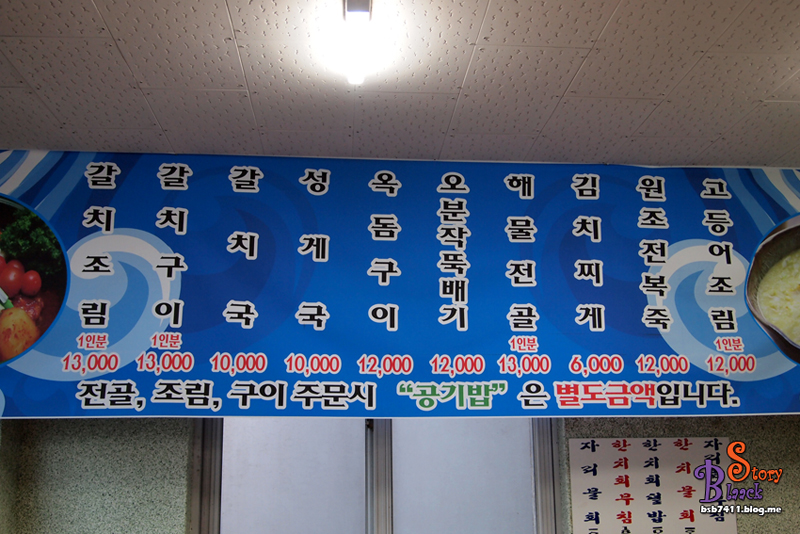 갈치조림 1인분 13,000
갈치구이 1인분 13,000
갈치국 10,000
성게국 10,000
옥돔구이 12,000
오분작뚝배기 12,000
해물전골 1인분 13,000
김치찌게 6,000
원조전복죽 12,000
고등어조림 1인분 12,000
전골, 조림, 구이 주문시 “공기밥” 은 별도금액입니다.
자리물회
한치회무침
한치회덮밥
한치물회
자리
Black Story
bsb7411.blog.me